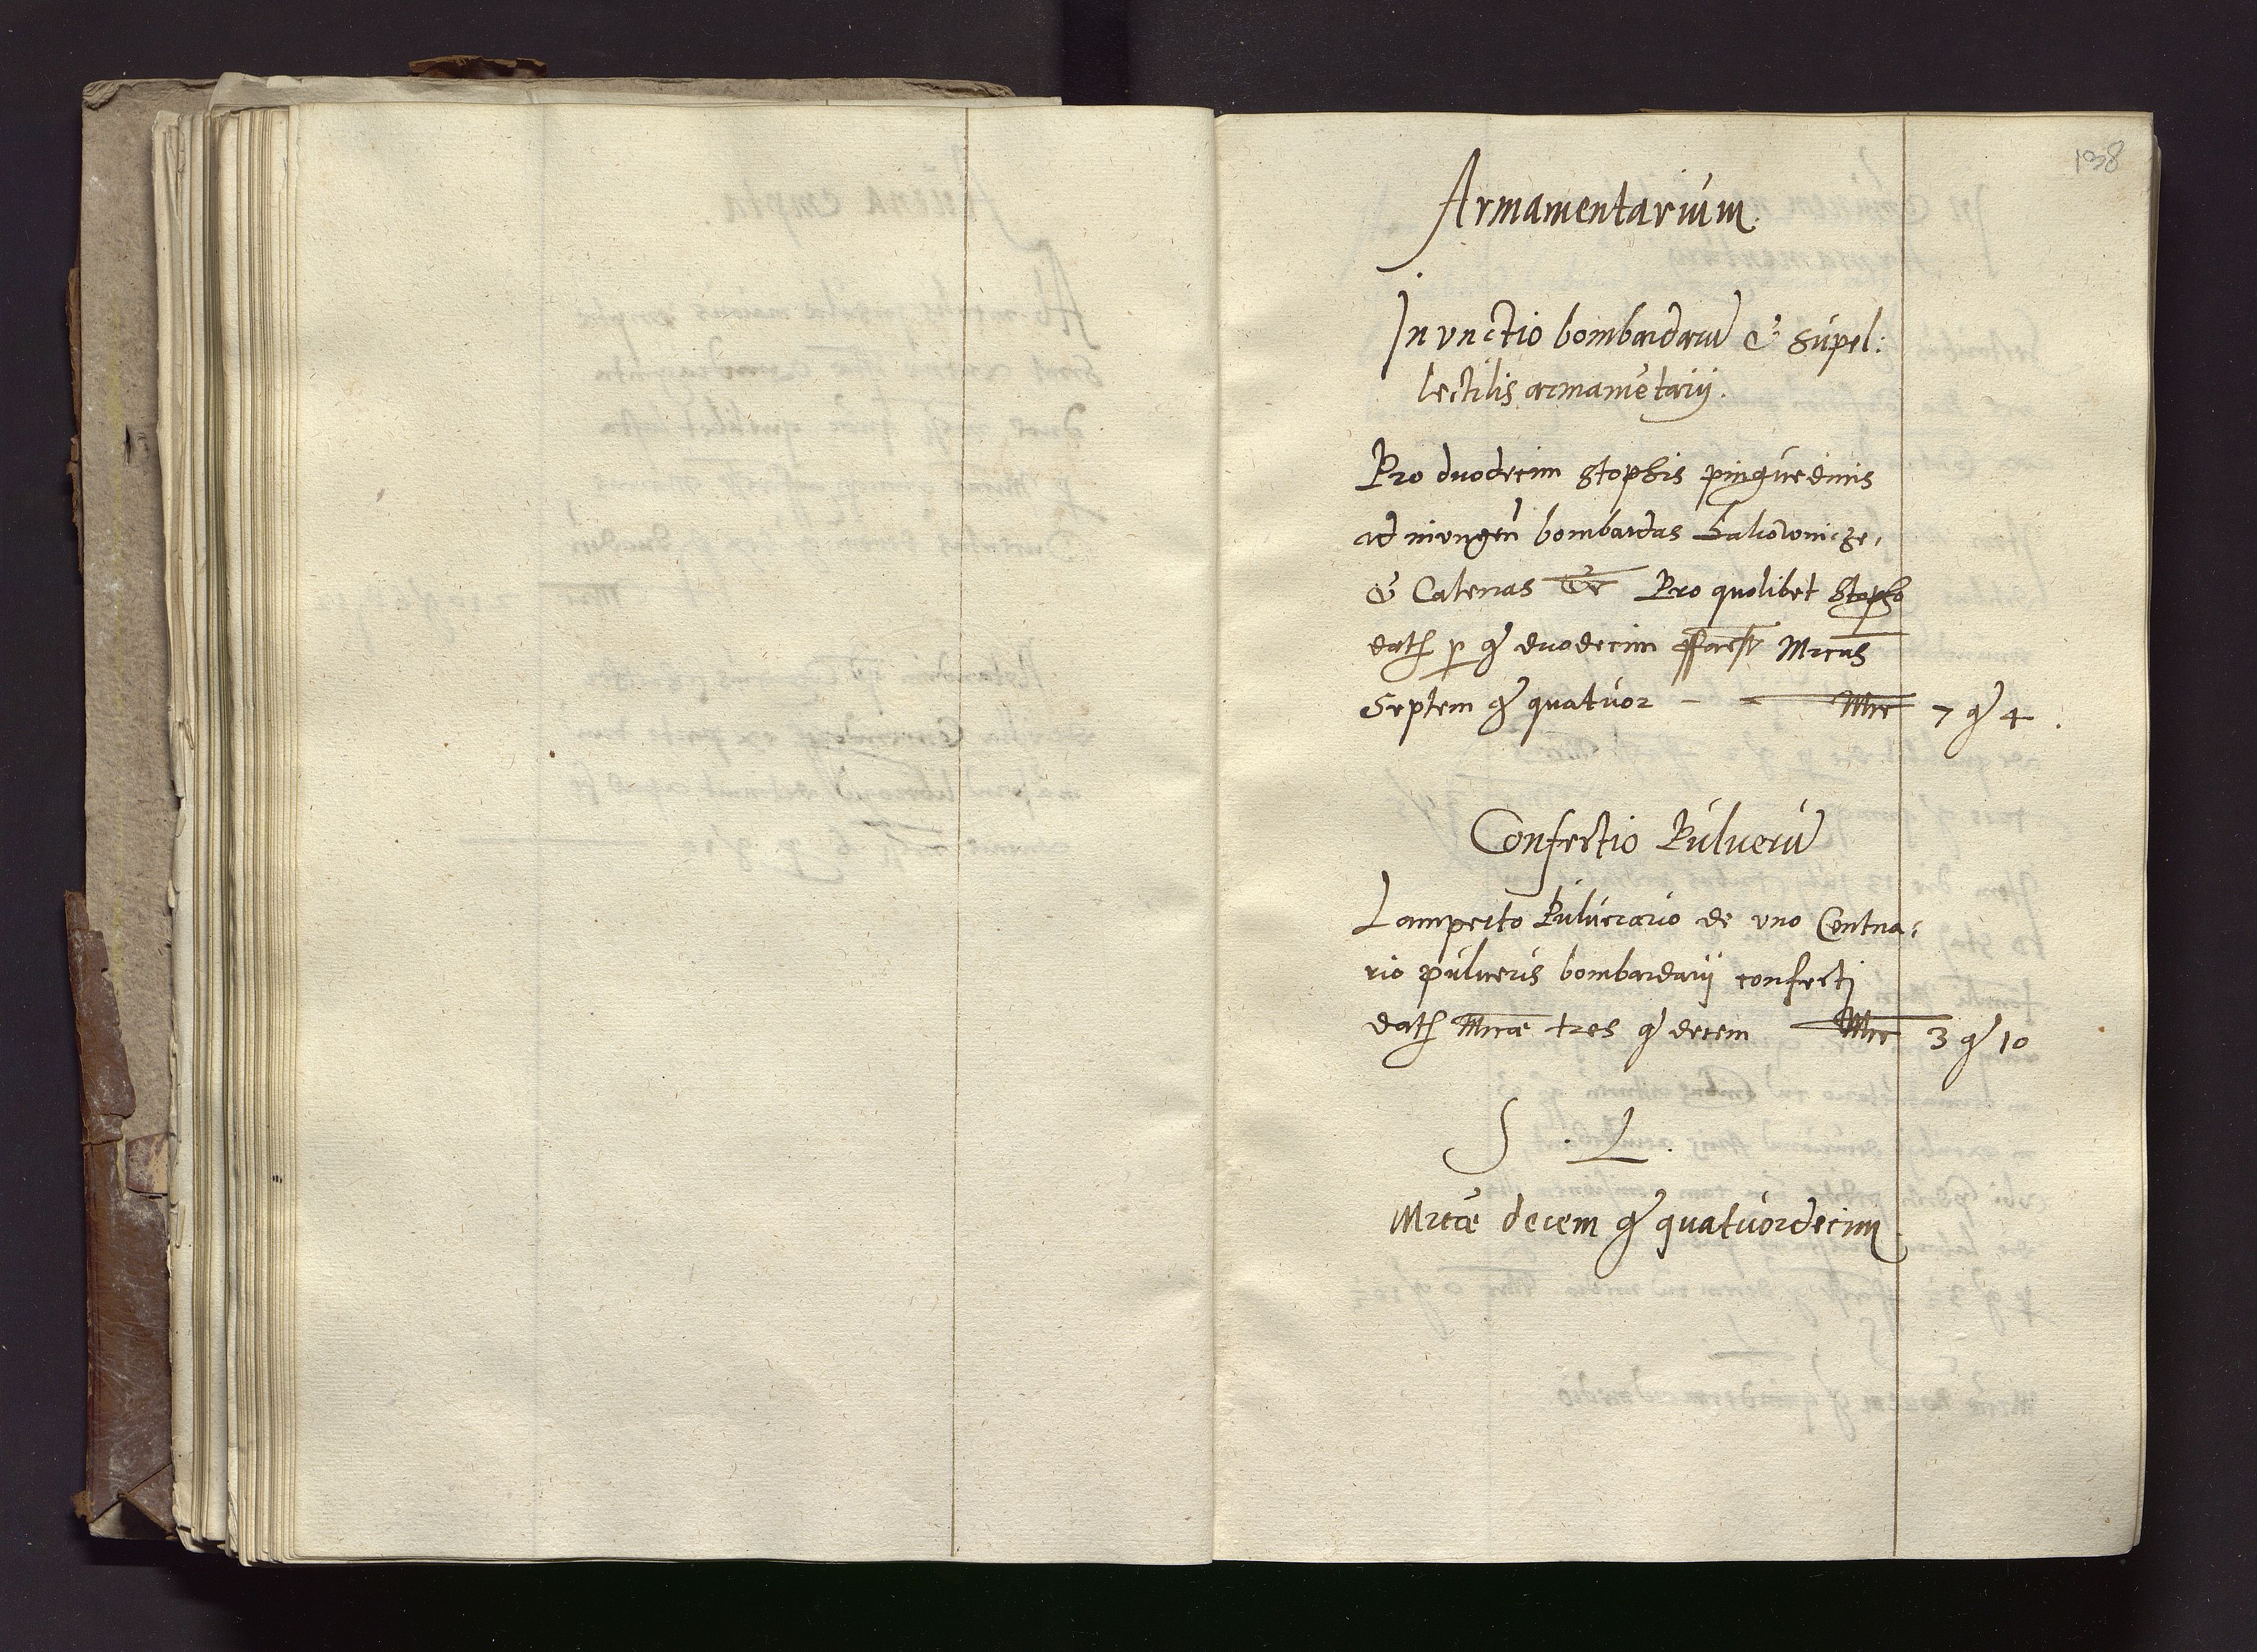 138
Armamentarium.
Inunctio bombardarū & supel:
lectilis armamētarij.
Pro duodecim stophis pinguedinis
ad inungen̄ bombardas
& Catenas etc Pro quolibet stopho
dat̄ p gr duodecim facit Mrcas
Septem gr quatuor - - Mrc 7 gr 4.
Confectio Puluerū
Lamperto Puluerario de uno Centna:
rio pulueris bombardarij confecti
dat̄ Mrcae tres gr decem Mrc 3 gr 10
S . L .
Mrcae decem gr quatuordecim